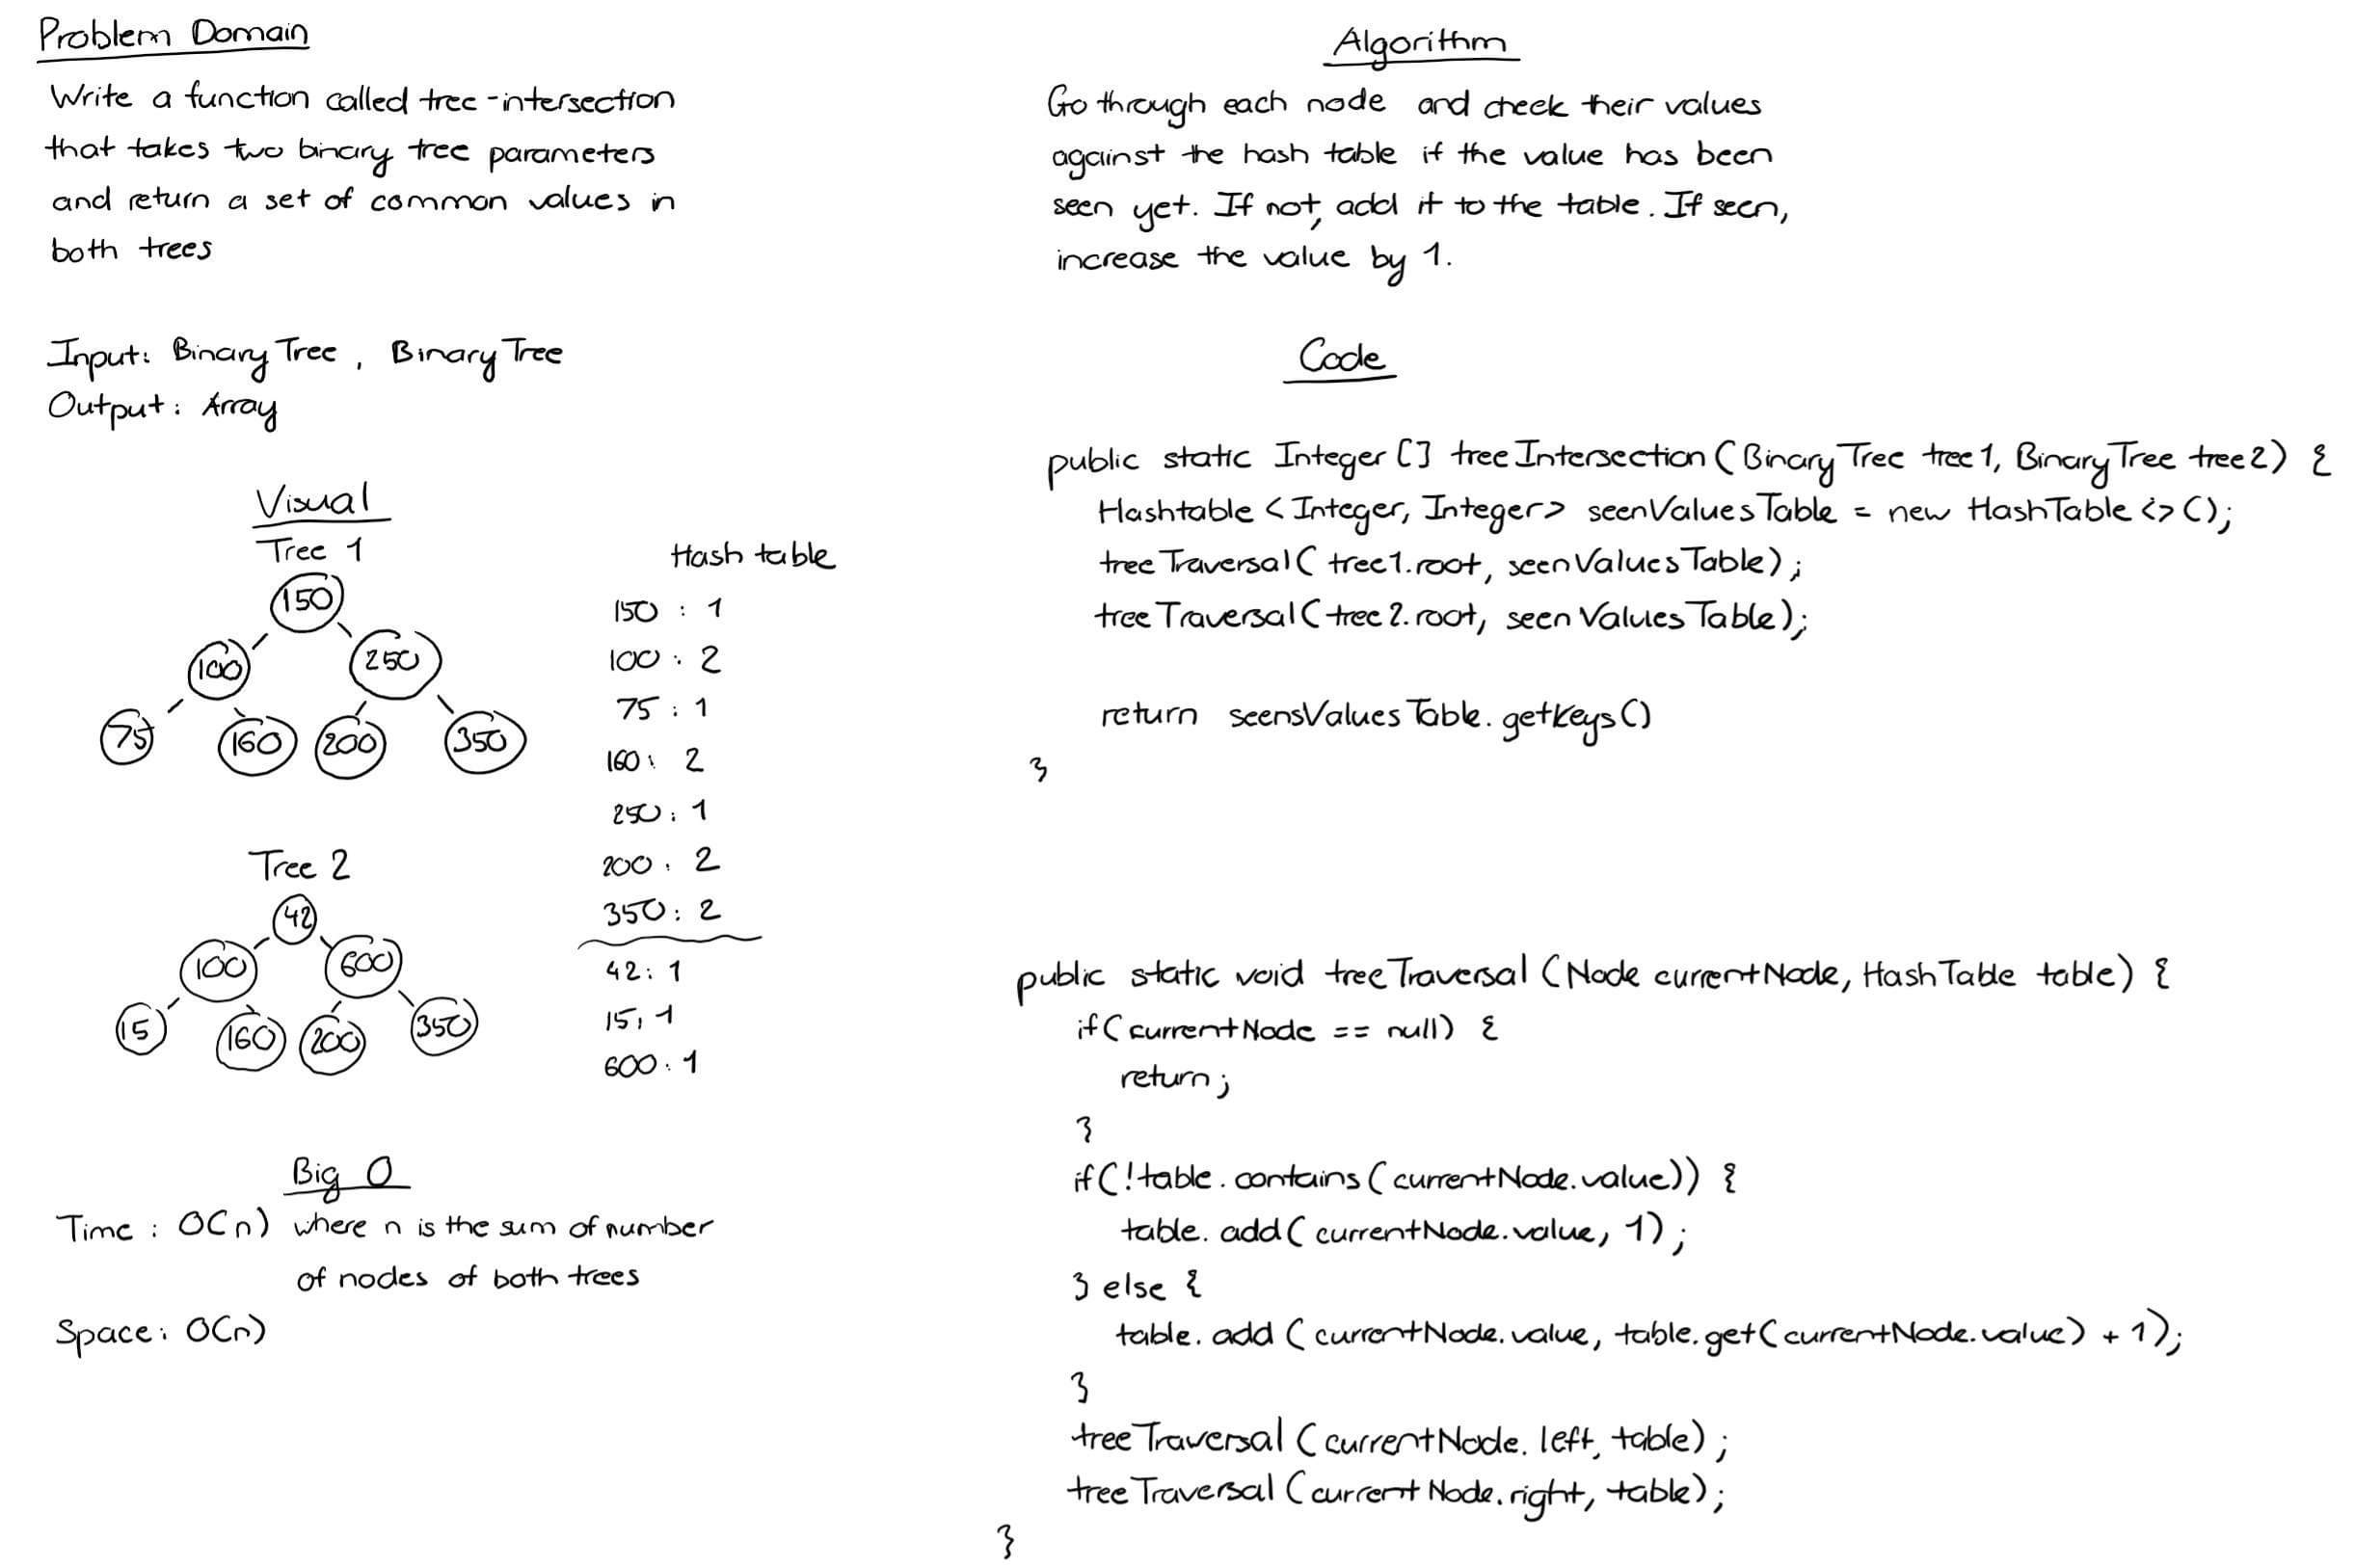 Problem Domain
Write a function called tree-intersection
that takes two binary tree parameters
and return a set of common values in
both trees
Input: Binary Tree, Binary Tree
Output: Array
Visual
Tree 1
150
100 250
75 160 200 350
Tree 2
42
100 600
15 160 200 350
Hash table
150 : 1
100 : 2
75 : 1
160 : 2
250 : 1
200 : 2
350 : 2
42 : 1
15 : 1
600 : 1
Big O
Time : O(n) where n is the sum of number
of nodes of both trees
Space : O(n)
Algorithm
Go through each node and check their values
against the hash table if the value has been
seen yet. If not, add it to the table. If seen,
increase the value by 1.
Code
public static Integer [] treeIntersection (BinaryTree tree1, BinaryTree tree2) {
Hashtable <Integer, Integer> seenValuesTable = new HashTable <> ();
treeTraversal( tree1.root, seenValuesTable);
treeTraversal( tree2.root, seenValuesTable);
return seensValuesTable.getKeys()
}
public static void treeTraversal (Node currentNode, HashTable table) {
if( currentNode == null) {
return;
}
if(!table.contains( currentNode.value)) {
table.add( currentNode.value, 1);
} else {
table.add ( currentNode.value, table.get( currentNode.value) + 1);
}
treeTraversal ( currentNode.left, table);
treeTraversal ( currentNode.right, table);
}